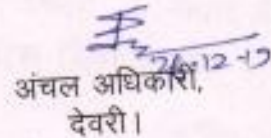 26-12-19
अंचल अधिकारी,
देवरी।